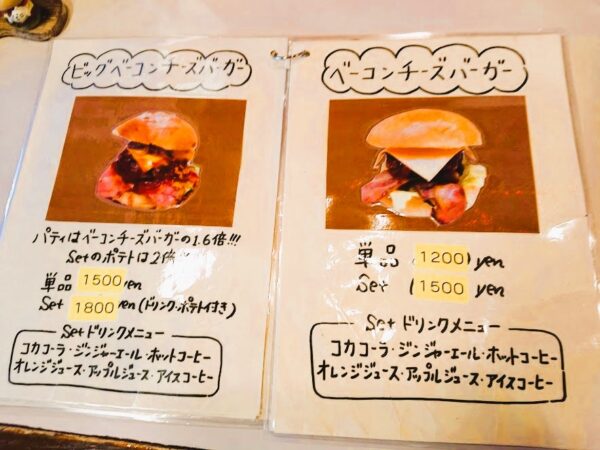 ビッグベーコンチーズバーガー
パティはベーコンチーズバーガーの1.6倍!!!
Setのポテトは2倍
単品 1500 yen
Set 1800 yen (ドリンク・ポテト付き)
Setドリンクメニュー
コカコーラ・ジンジャーエール・ホットコーヒー
オレンジジュース・アップルジュース・アイスコーヒー
ベーコンチーズバーガー
単品 (1200) yen
Set (1500 yen
Setドリンクメニュー
コカコーラ・ジンジャーエール・ホットコーヒー
オレンジジュース・アップルジュース・アイスコーヒー